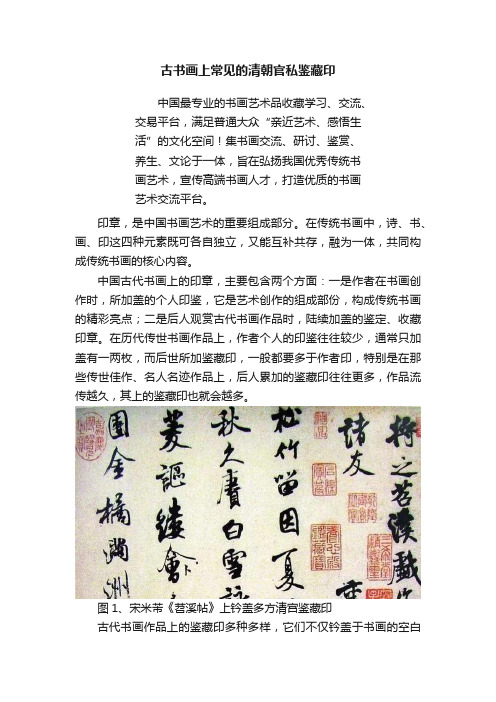 古书画上常见的清朝官私鉴藏印
中国最专业的书画艺术品收藏学习、交流、
交易平台，满足普通大众“亲近艺术、感悟生
活”的文化空间！集书画交流、研讨、鉴赏、
养生、文论于一体，旨在弘扬我国优秀传统书
画艺术，宣传高端书画人才，打造优质的书画
艺术交流平台。
印章，是中国书画艺术的重要组成部分。在传统书画中，诗、书、
画、印这四种元素既可各自独立，又能互补共存，融为一体，共同构
成传统书画的核心内容。
中国古代书画上的印章，主要包含两个方面：一是作者在书画创
作时，所加盖的个人印鉴，它是艺术创作的组成部份，构成传统书画
的精彩亮点；二是后人观赏古代书画作品时，陆续加盖的鉴定、收藏
印章。在历代传世书画作品上，作者个人的印鉴往往较少，通常只加
盖有一两枚，而后世所加鉴藏印，一般都要多于作者印，特别是在那
些传世佳作、名人名迹作品上，后人累加的鉴藏印往往更多，作品流
传越久，其上的鉴藏印也就会越多。
將之苕溪戲
諸友
松竹留因夏
秋久賡白雪詠
菱謳縷會
團金橘滿洲
图1、宋米芾《苕溪帖》上钤盖多方清宫鉴藏印
古代书画作品上的鉴藏印多种多样，它们不仅钤盖于书画的空白